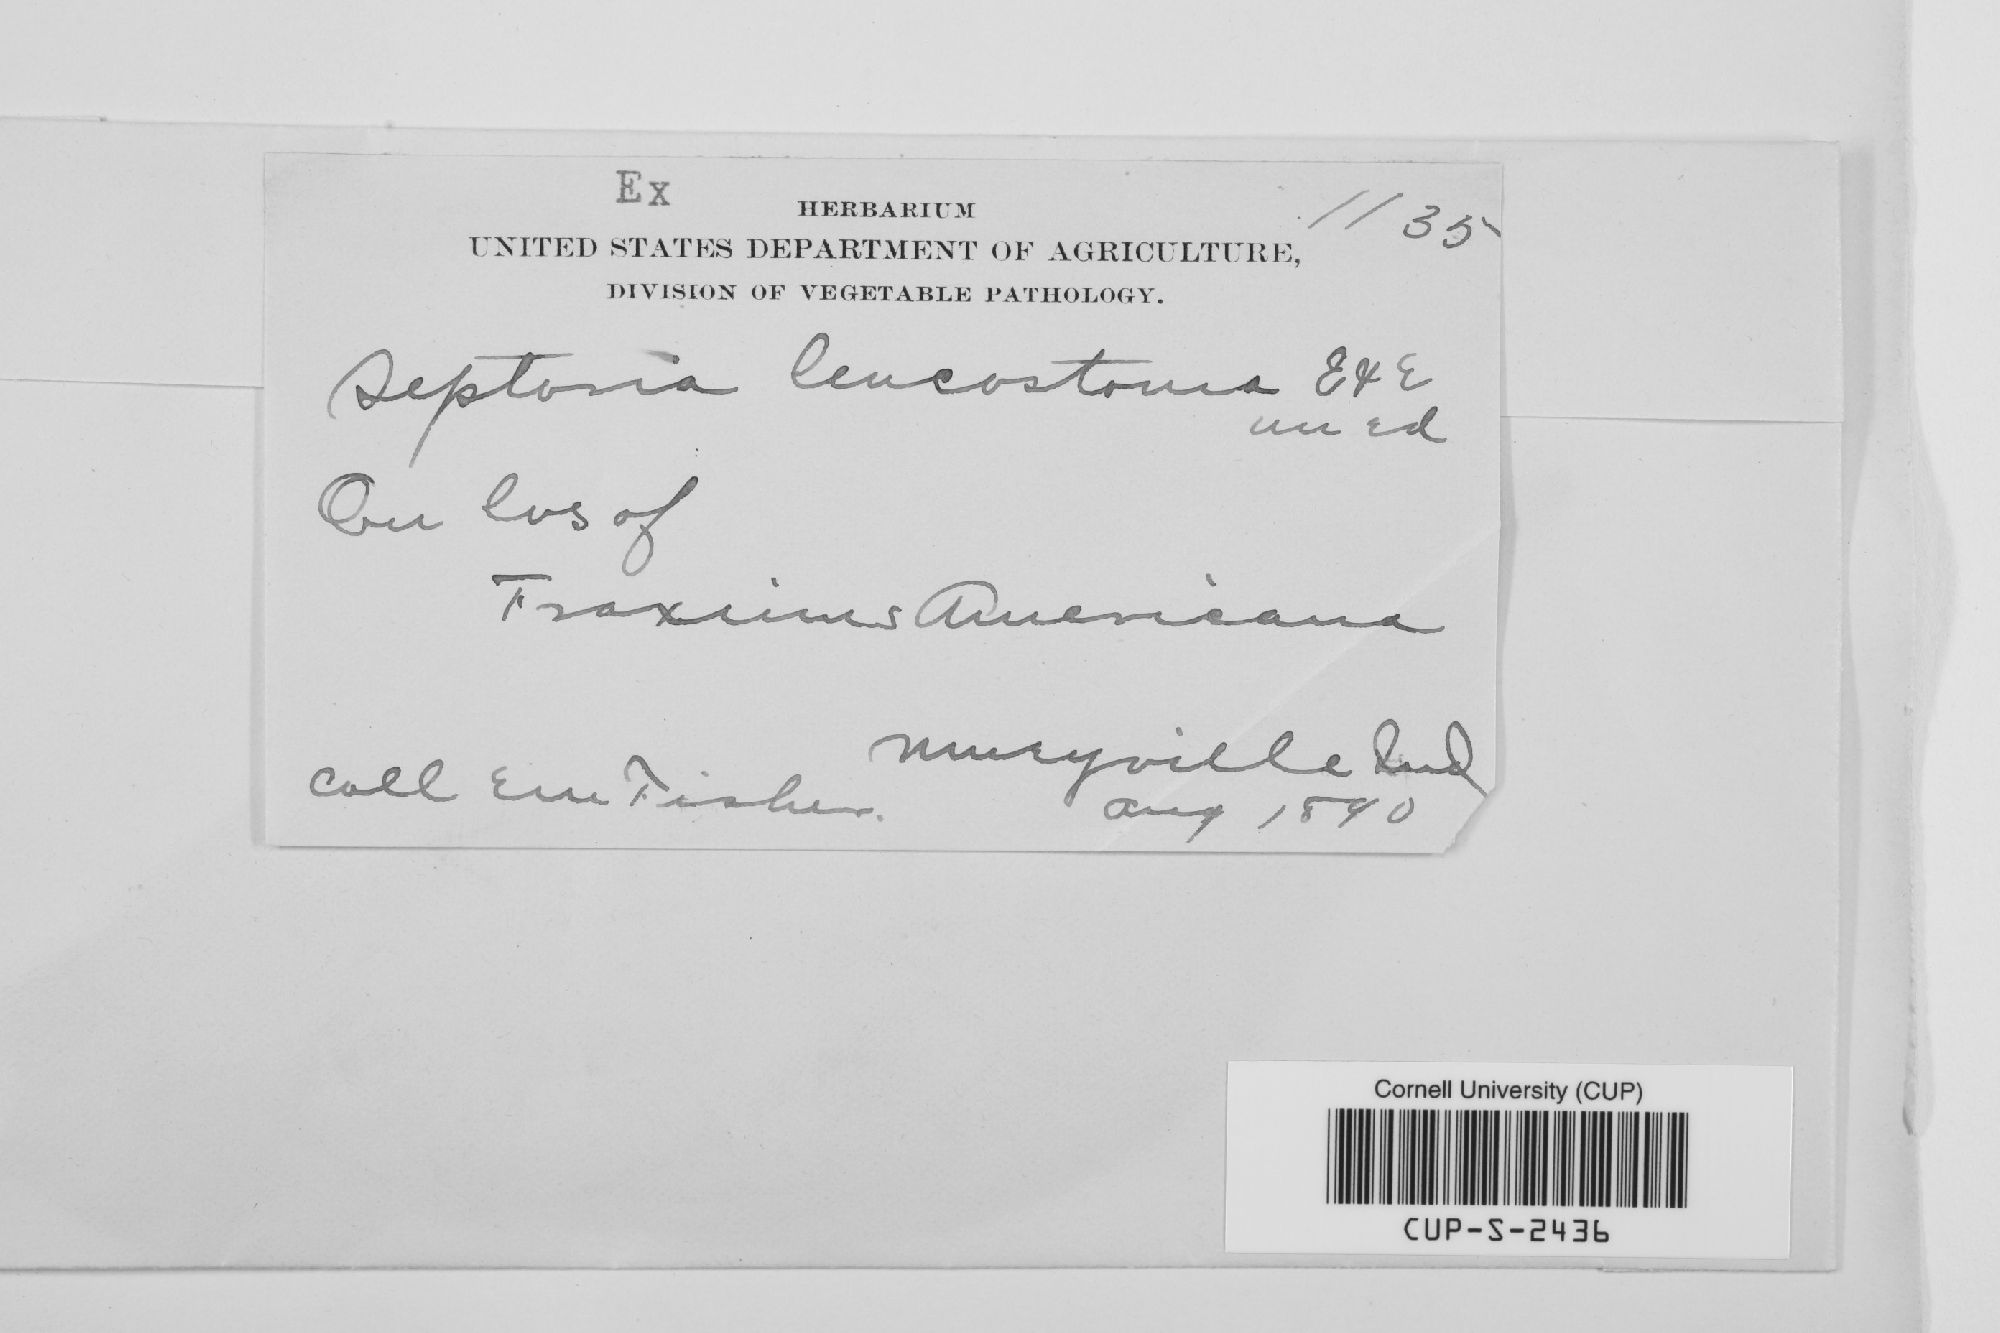 Ex
HERBARIUM
1135
UNITED STATES DEPARTMENT OF AGRICULTURE,
DIVISION OF VEGETABLE PATHOLOGY.
Septoria leucostoma E & E
un ed
On lvs of
Fraxinus Americana
Ind
coll EM Fisher.
Aug 1890
Cornell University (CUP)
CUP-S-2436